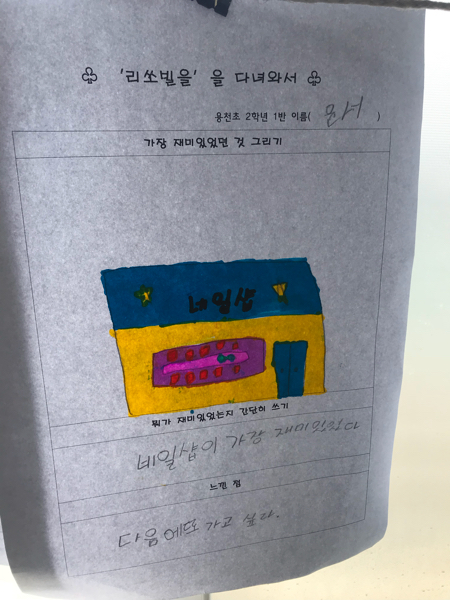 ♧ '리쏘빌을' 을 다녀와서 ♧
용천초 2학년 1반 이름( )
가장 재미있었던 것 그리기
네일샵
뭐가 재미있었는지 간단히 쓰기
네일샵이 가장 재미있었다
느낀 점
다음에또 가고 싶다.